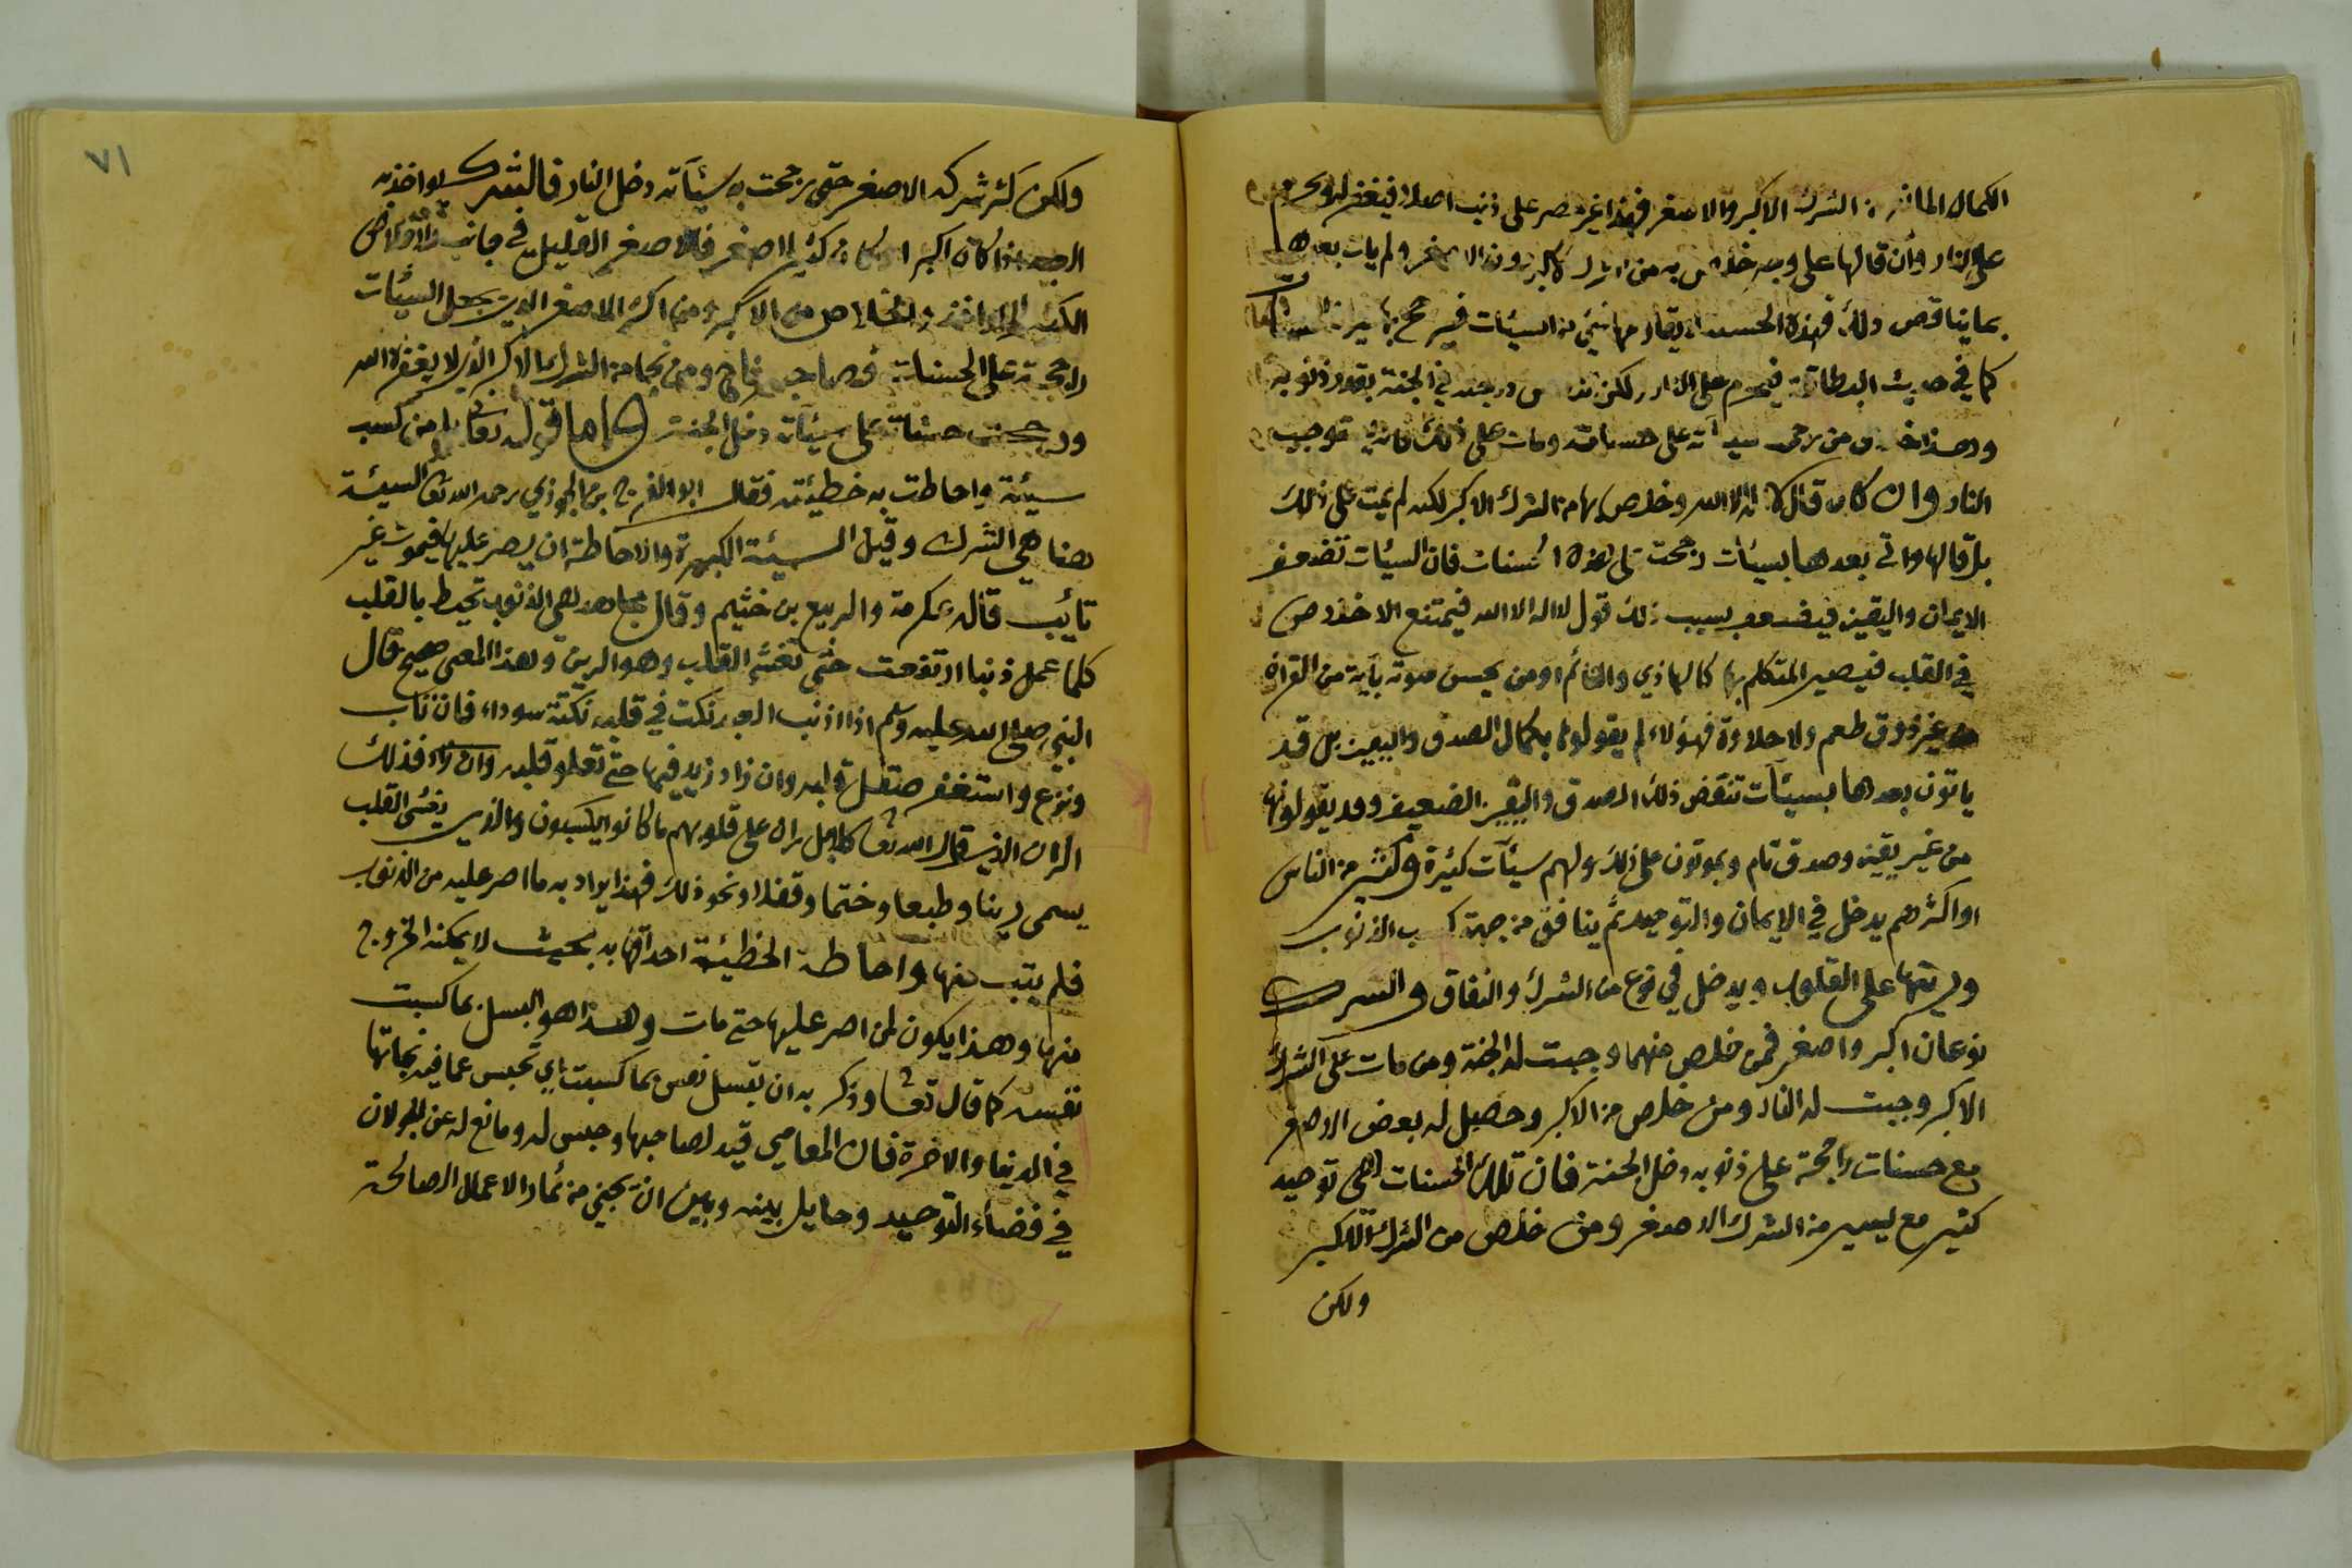 الكمال المانع من الشرك الاكبر والاصغر فهذا غير مصر على ذنب اصلا فيغفر له ويحرم
على النار وان قالها على وجه خلص به من الشرك الاكبر دون الاصغر ولم يات بعدها
بما يناقض ذلك فهذه الحسنة لا يقاومها شيئ من السيئات فيرجح بها ميزان الحسنات
كما في حديث البطاقة فيحرم على النار ولكن تنقص درجته في الجنة بقدر ذنوبه
وهذا خلاف من رجحت سيئآته على حسناته ومات على ذلك فانه توجب
النار وان كان قال لا اله الا الله وخلص بها من الشرك الاكبر لكنه لم يمت على ذلك
بل قالها واتى بعدها بسيئات رجحت على هذه الحسنات فان السيئات تضعف
الايمان واليقين فيضعف بسبب ذلك قول لا اله الا الله فيمتنع الاخلاص
في القلب فيصير المتكلم بها كالهاذي والنائم او من يحسن صوته بآية من القران
من غير ذوق طعم ولا حلاوة فهؤلاء لم يقولوها بكمال الصدق واليقين بل قد
ياتون بعدها بسيئآت تنقض ذلك الصدق واليقين الضعيف وقد يقولونها
من غير يقين وصدق تام ويموتون على ذلك ولهم سيئآت كثيرة وكثير من الناس
او اكثرهم يدخل في الايمان والتوحيد ثم ينافق من جهة كسب الذنوب
ورينها على القلوب ويدخل في نوع من الشرك والنفاق والشرك
نوعان اكبر واصغر فمن خلص منهما وجبت له الجنة ومن مات على الشرك
الاكبر وجبت له النار ومن خلص من الاكبر وحصل له بعض الاصغر
مع حسنات راجحة على ذنوبه دخل الجنة فان تلك الحسنات هي توحيد
كثير مع يسير من الشرك الاصغر ومن خلص من الشرك الاكبر
ولكن
٧١
ولكن كثر شركه الاصغر حتى رجحت به سيئآته دخل النار فالشرك يواخذ به
العبد اذا كان اكبر او كان كثيرا اصغر فالاصغر القليل في جانب الاخلاص
الكثير لا يواخذ به والخلاص من الاكبر ومن اكثر الاصغر الذي يجعل السيئات
راجحة على الحسنات فصاحبه ناج ومن نجا من الشرك الاكبر الذي لا يغفره الله
ورجحت حسناته على سيئآته دخل الجنة واما قوله تعالى بلى من كسب
سيئة واحاطت به خطيئته فقال ابو الفرج بن الجوزي رحمه الله تعا السيئة
هنا هي الشرك وقيل السيئة الكبيرة والاحاطة ان يصر عليها فيموت غير
تائب قاله عكرمة والربيع بن خثيم وقال مجاهد هي الذنوب تحيط بالقلب
كلما عمل ذنبا ارتفعت حتى تغشى القلب وهو الرين وهذا المعنى صحيح قال
النبي صلى الله عليه وسلم اذا اذنب العبد نكت في قلبه نكتة سوداء فان تاب
ونزع واستغفر صقل قلبه وان زاد زيد فيها حتى تعلو قلبه فذلك
الران الذي قال الله تعا كلا بل ران على قلوبهم ما كانوا يكسبون والذي يغشى القلب
يسمى رينا وطبعا وختما وقفلا ونحو ذلك فهذا يراد به ما اصر عليه من الذنوب
فلم يتب منها واحاطة الخطيئة احداقها به بحيث لا يمكنه الخروج
منها وهذا يكون لمن اصر عليها حتى مات وهذا هو البسل بما كسبت
نفسه كما قال تعا وذكر به ان تبسل نفس بما كسبت اي تحبس عما فيه نجاتها
في الدنيا والاخرة فان المعاصي قيد لصاحبها وحبس له ومانع له عن الجولان
في فضاء التوحيد وحايل بينه وبين ان يجني من ثمار الاعمال الصالحة